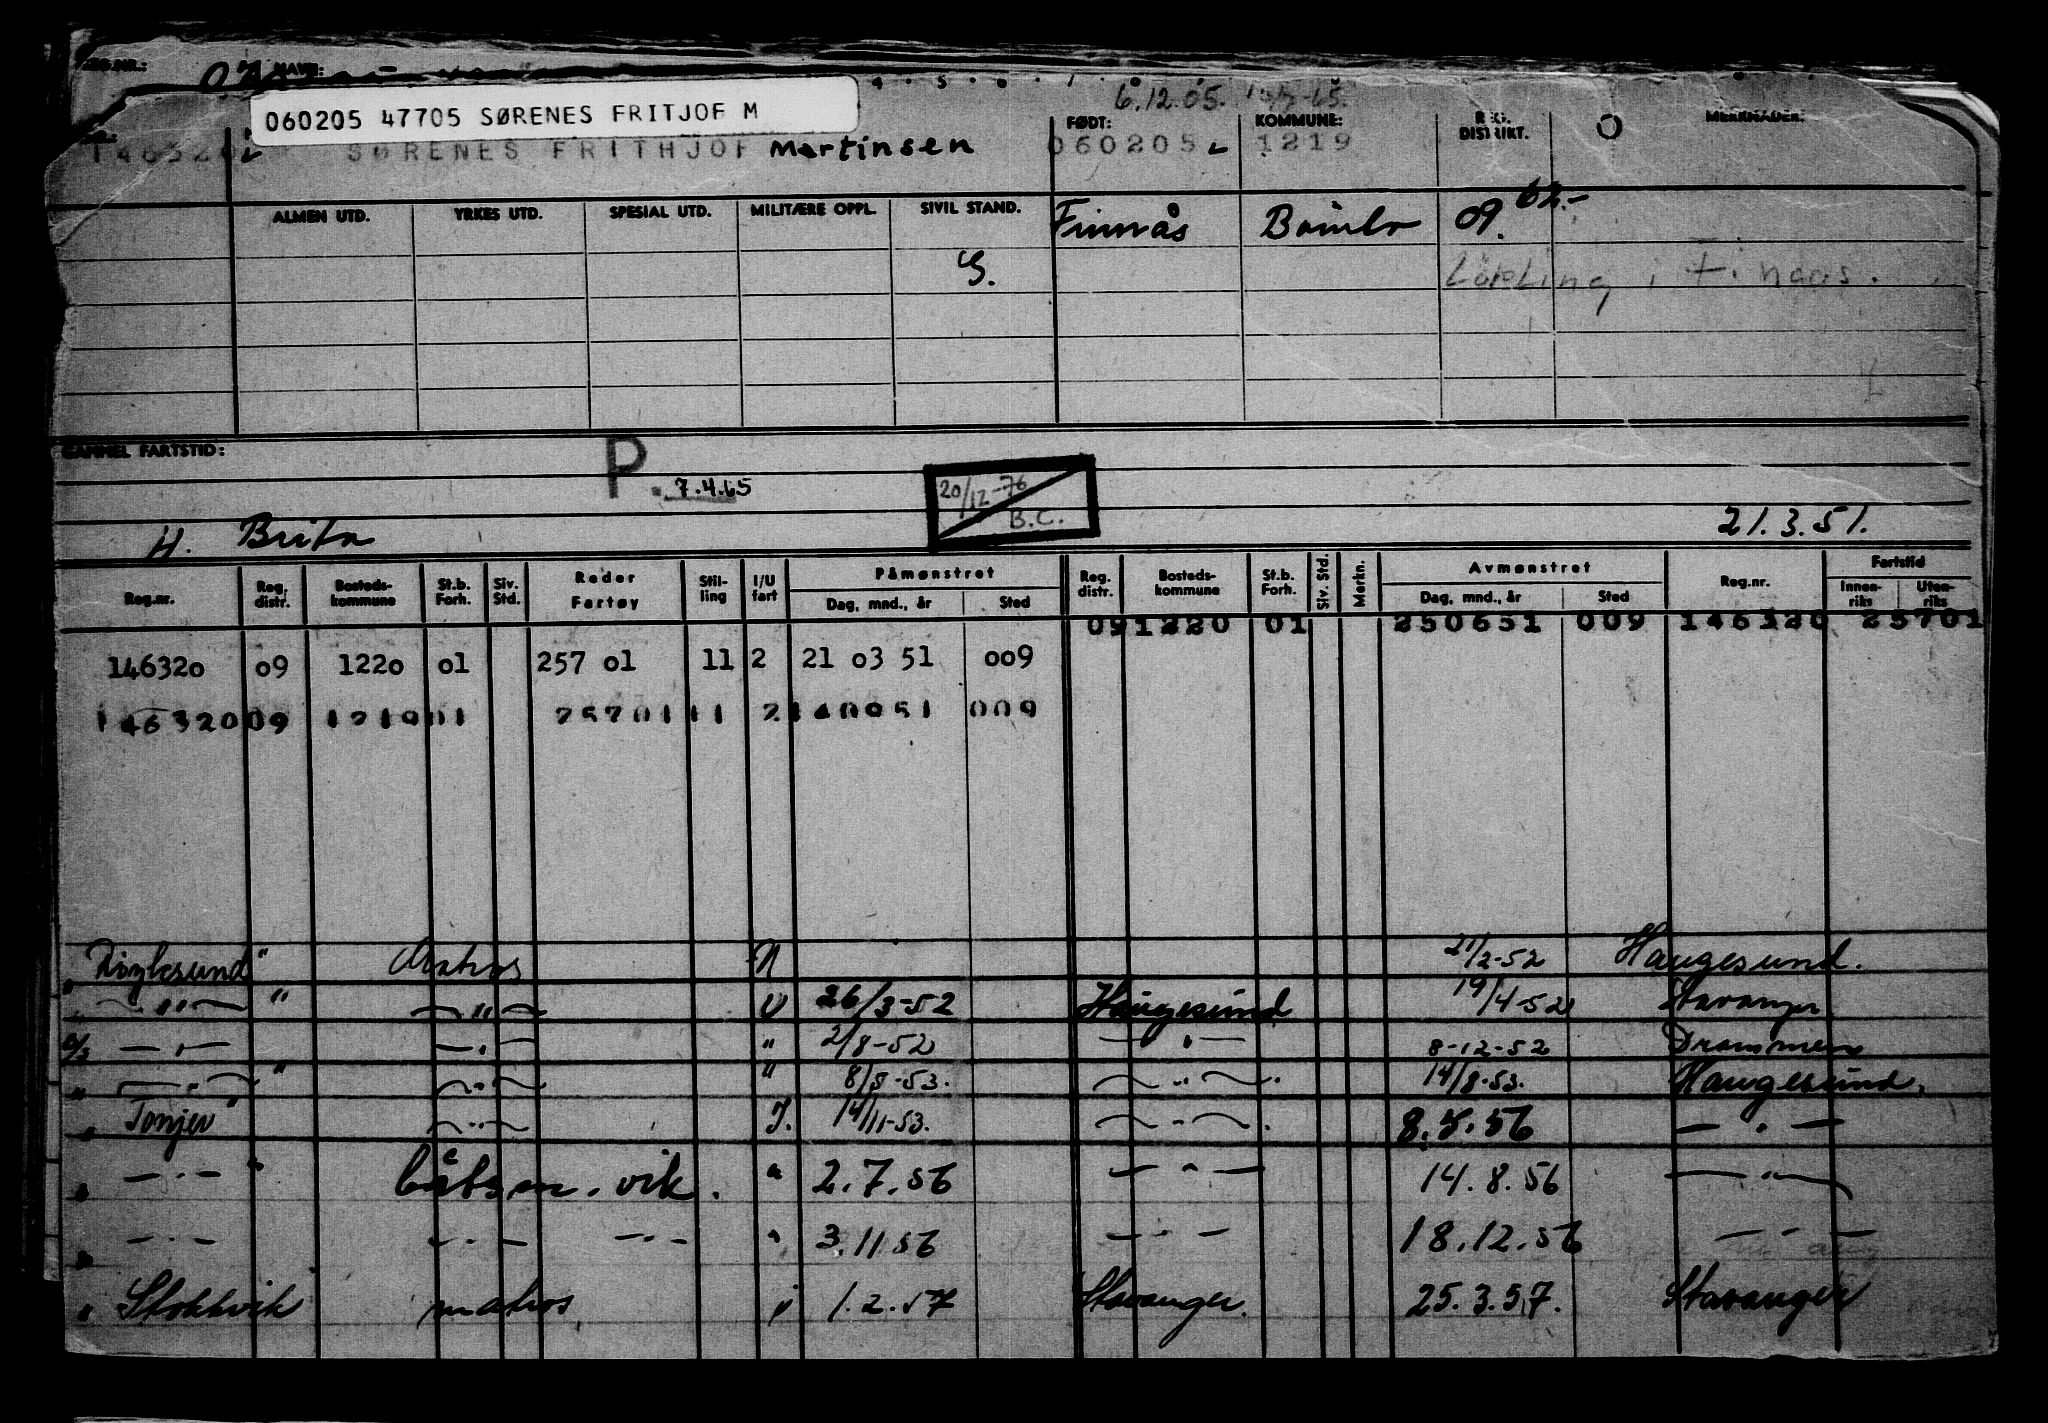 REG.NR.: NAVN:
6.12.05.
060205 47705 SØRENES FRITJOF M
FØDT: KOMMUNE: REG. DISTRIKT. O MERKNADER:
146320 SØRENES FRITHJOF Martinsen 060205 1219
ALMEN UTD. YRKES UTD. SPESIAL UTD. MILITÆRE OPPL. SIVIL STAND. Finnås Bømlo 09. 62.-
G. i Finaas.
GAMMEL FARTSTID: P. 7.4.65
20/12-76 B.C.
H. Brita 21.3.51.
Reg.nr. Reg. distr. Bosteds-kommune St.b. Forh. Siv. Std. Reder Fartøy Stil-ling I/U fart Påmønstret Dag, mnd., år Sted Reg. distr. Bosteds-kommune St.b. Forh. Siv. Std. Merkn. Avmønstret Dag, mnd., år Sted Reg.nr. Fartstid Innen-riks Uten-riks
091220 01 250651 009 146320 25701
146320 09 1220 01 257 01 11 2 21 03 51 009
146320 09 1219 01 25701 11 2 140951 009
" Matros 21/2-52 Haugesund.
— " — " — " — U 26/3-52 Haugesund 19/4-52 Stavanger
— " — — " — " 2/8-52 — " — 8-12-52 Drammen
" — " — " — " — " 8/5-53. — " — 14/8-53. Haugesund.
" Tonjer " — " — I. 14/11-53. — " — 8.5.56 — " —
" — " — " båtsm. vik. " 2.7.56 — " — 14.8.56 — " —
" — " — — " — — " — " 3.11 56 — " — 18.12.56 — " —
" Stokkvik matros " 1.2.57 Stavanger. 25.3.57. Stavanger